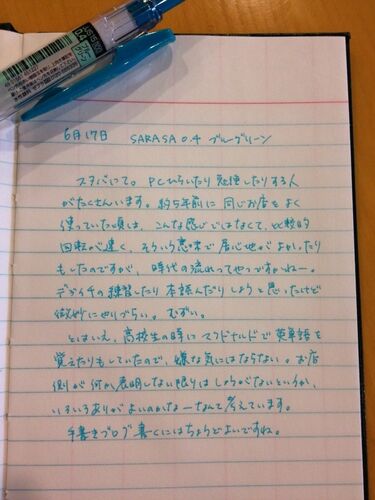 JJS15 BG
0.4
6月17日 SARASA 0.4 ブルーグリーン
スタバにて。PCひらいたり勉強したりする人
がたくさんいます。約5年前に同じお店をよく
使っていた頃は、こんな感じではなくて、比較的
回転が速く、そういう意味で居心地がよかったり
もしたのですが、時代の流れってやつですかねー。
デライチの練習したり本読んだりしようと思ったけど
微妙にやりづらい。むずい。
とはいえ、高校生の時にマクドナルドで英単語を
覚えたりもしていたので、嫌な気にはならない。お店
側が何か表明しない限りはしょうがないというか、
いろいろありがよいのかなーなんて考えています。
手書きブログ書くにはちょうどよいですね。